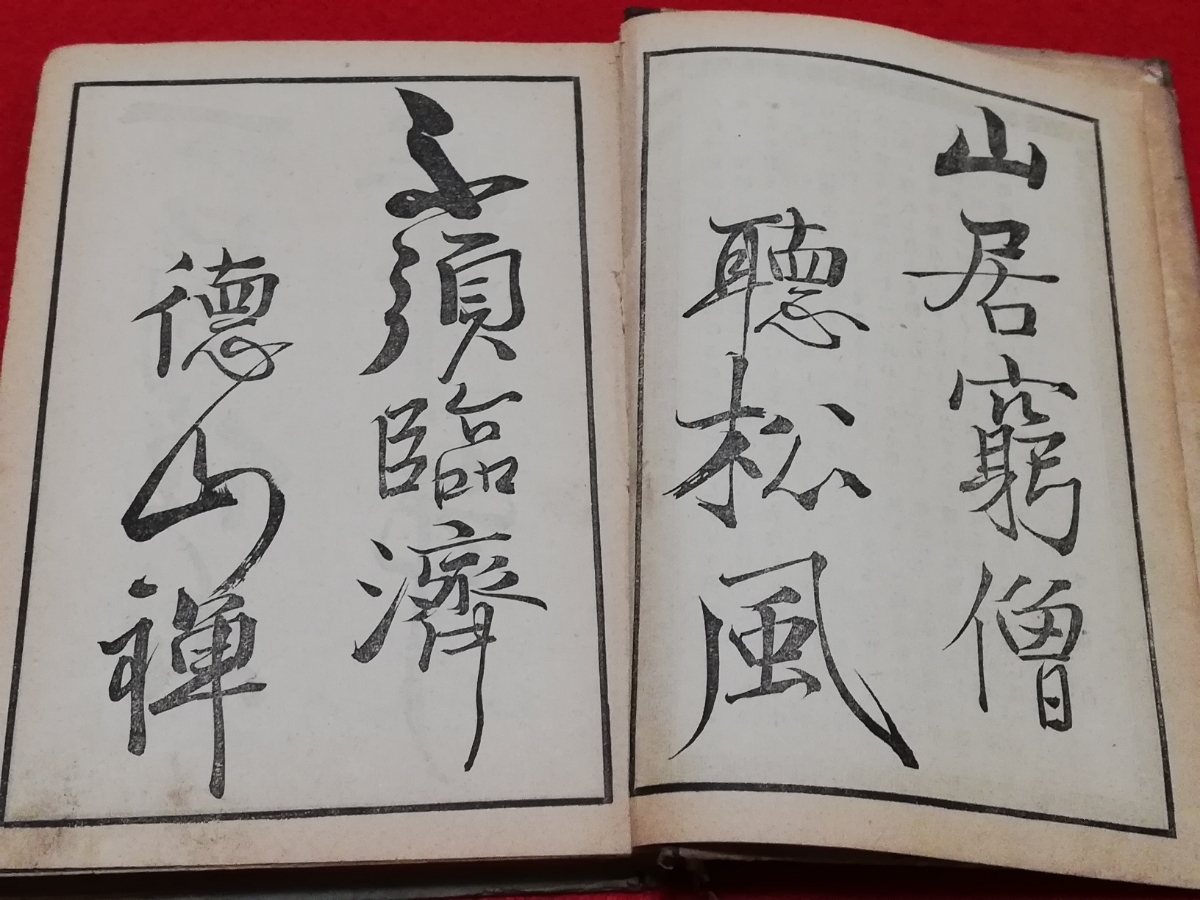 山居窮僧
聽松風
不須臨濟
德山禅